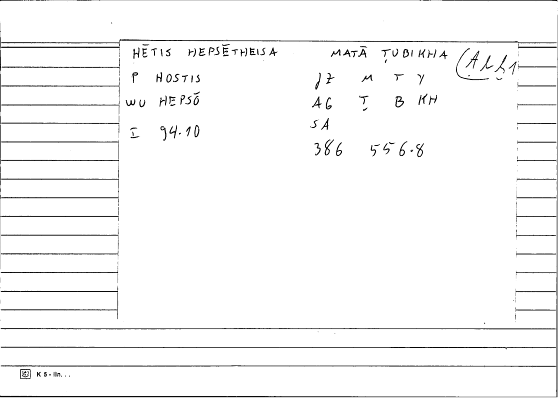 HĒTIS HEPSĒTHEISA MATĀ ṬUBIKHA
P HOSTIS JZ M T Y
WU HEPSŌ AG Ṭ B KH
SA
I 94.10
386 556.8
K 5 - lin. . .